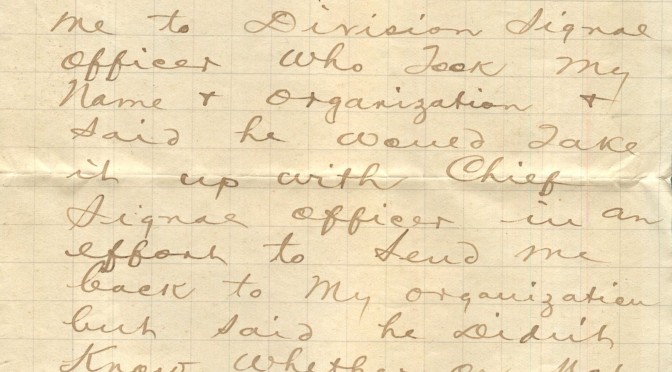 me to Division Signal
officer who Took My
Name & organization &
Said he would Take
it up with Chief
Signal officer in an
effort to Send me
back to My organization
but said he Didn't
Know Whether or Not